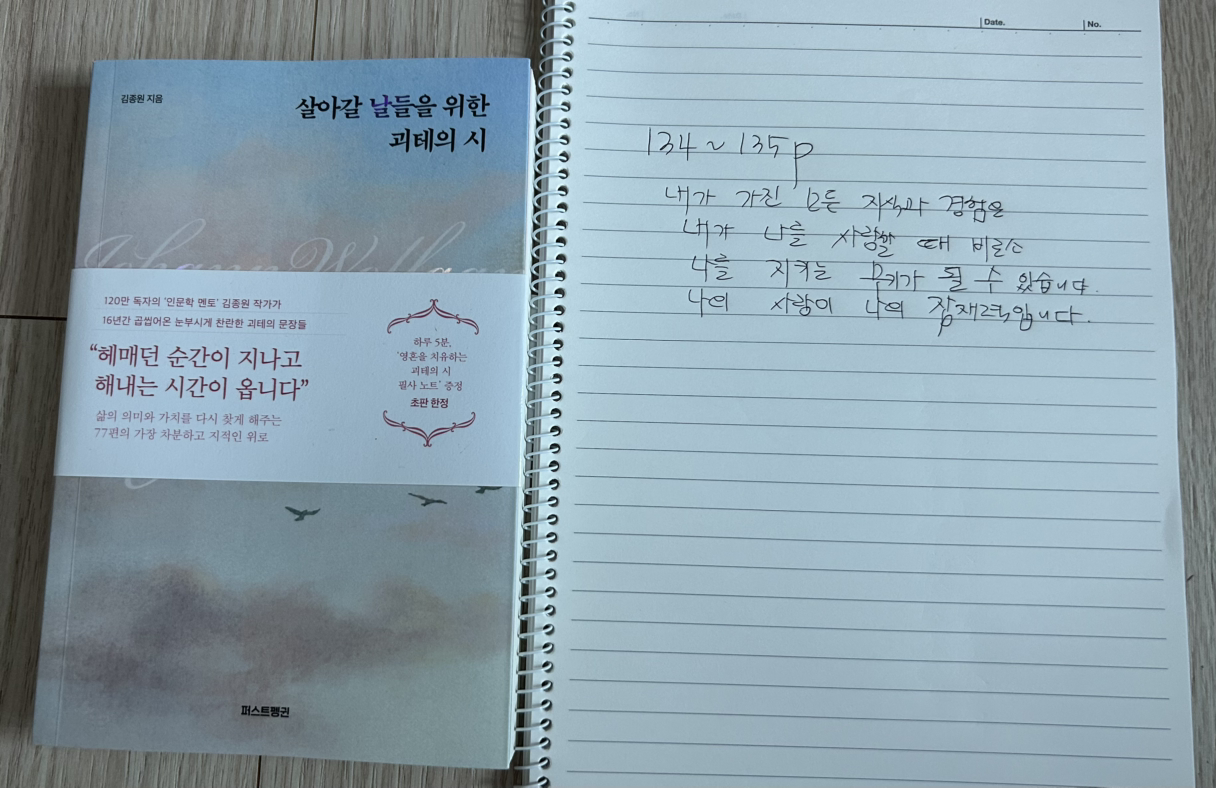 김종원 지음
살아갈 날들을 위한
괴테의 시
120만 독자의 '인문학 멘토' 김종원 작가가
16년간 곱씹어온 눈부시게 찬란한 괴테의 문장들
“헤매던 순간이 지나고
해내는 시간이 옵니다”
삶의 의미와 가치를 다시 찾게 해주는
77편의 가장 차분하고 지적인 위로
하루 5분,
'영혼을 치유하는
괴테의 시
필사 노트' 증정
초판 한정
퍼스트펭귄
Date.
No.
134 ~ 135 p
내가 가진 모든 지식과 경험은
내가 나를 사랑할 때 비로소
나를 지키는 무기가 될 수 있습니다.
나의 사랑이 나의 잠재력입니다.